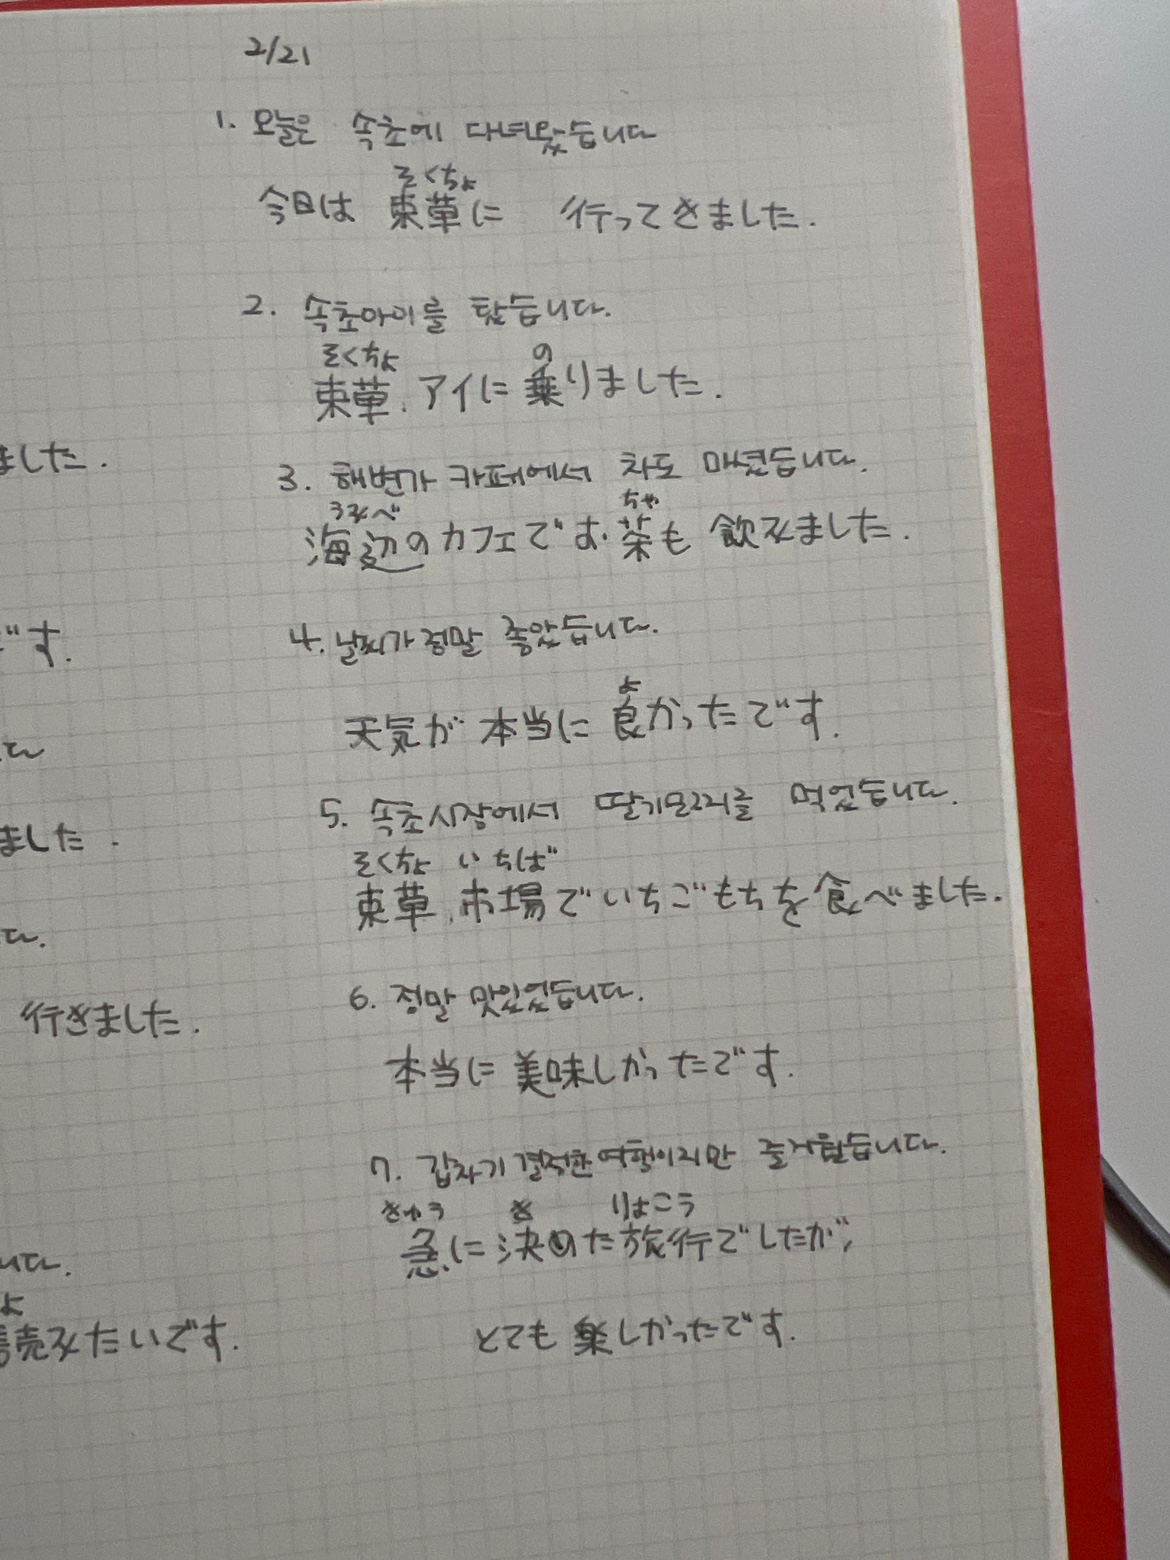 2/21
1. 오늘은 속초에 다녀왔습니다
そくちょ
今日は 束草に 行ってきました.
2. 속초아이를 탔습니다.
そくちょ の
束草.アイに 乗りました.
ました.
3. 해변가 카페에서 차도 마셨습니다.
うみべ ちゃ
海辺のカフェでお.茶も 飲みました.
です.
4. 날씨가 정말 좋았습니다.
よ
天気が 本当に 良かったです.
5. 속초시장에서 딸기모찌를 먹었습니다.
そくちょ いちば
ました.
束草.市場でいちごもちを食べました.
6. 정말 맛있었습니다.
行きました.
本当に 美味しかったです.
7. 갑자기 결정한 여행이지만 즐거웠습니다.
きゅう き りょこう
急に 決めた旅行でしたが,
니다.
よ
読みたいです.
とても 楽しかったです.